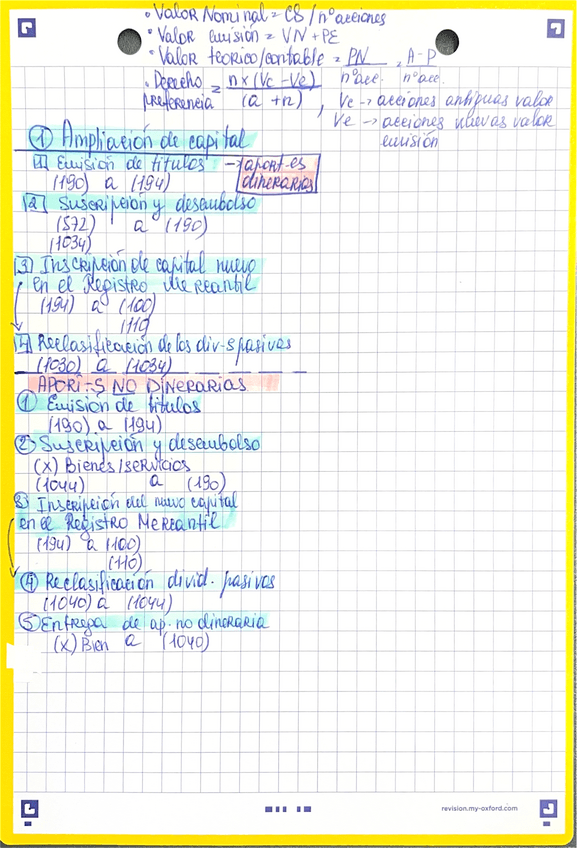 • Valor Nominal = CS / nº acciones
• Valor emisión = VN + PE
• Valor teórico/contable = PN / nº acc. , A-P / nº acc.
• Derecho preferencia = n x (Vc - Ve) / (a + n) , Vc → acciones antiguas valor
Ve → acciones nuevas valor
emisión
① Ampliación de capital
1 Emisión de titulos → aport-es
dinerarias
(190) a (194)
2 Suscripción y desembolso
(572) a (190)
(1034)
3 Inscripción de capital nuevo
en el Registro Mercantil
(194) a (100)
(110)
4 Reclasificación de los div-s pasivos
(1030) a (1034)
APORT-S NO DINERARIAS
① Emisión de titulos
(190) a (194)
② Suscripción y desembolso
(x) Bienes/servicios
(1044) a (190)
3) Inscripción del nuevo capital
en el Registro Mercantil
(194) a (100)
(110)
④ Reclasificación divid. pasivos
(1040) a (1044)
⑤ Entrega de ap. no dineraria
(x) Bien a (1040)
revision.my-oxford.com